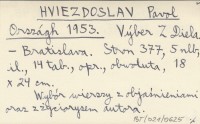 HVIEZDOSLAV Pavol
Országh 1953. Výber Z Diela
- Bratislava. Stron 377, 5 nlb,
il., 14 tabl., opr., obwoluta, 18
x 24 cm.
Wybór wierszy z objaśnieniami
oraz z życiorysem autora.